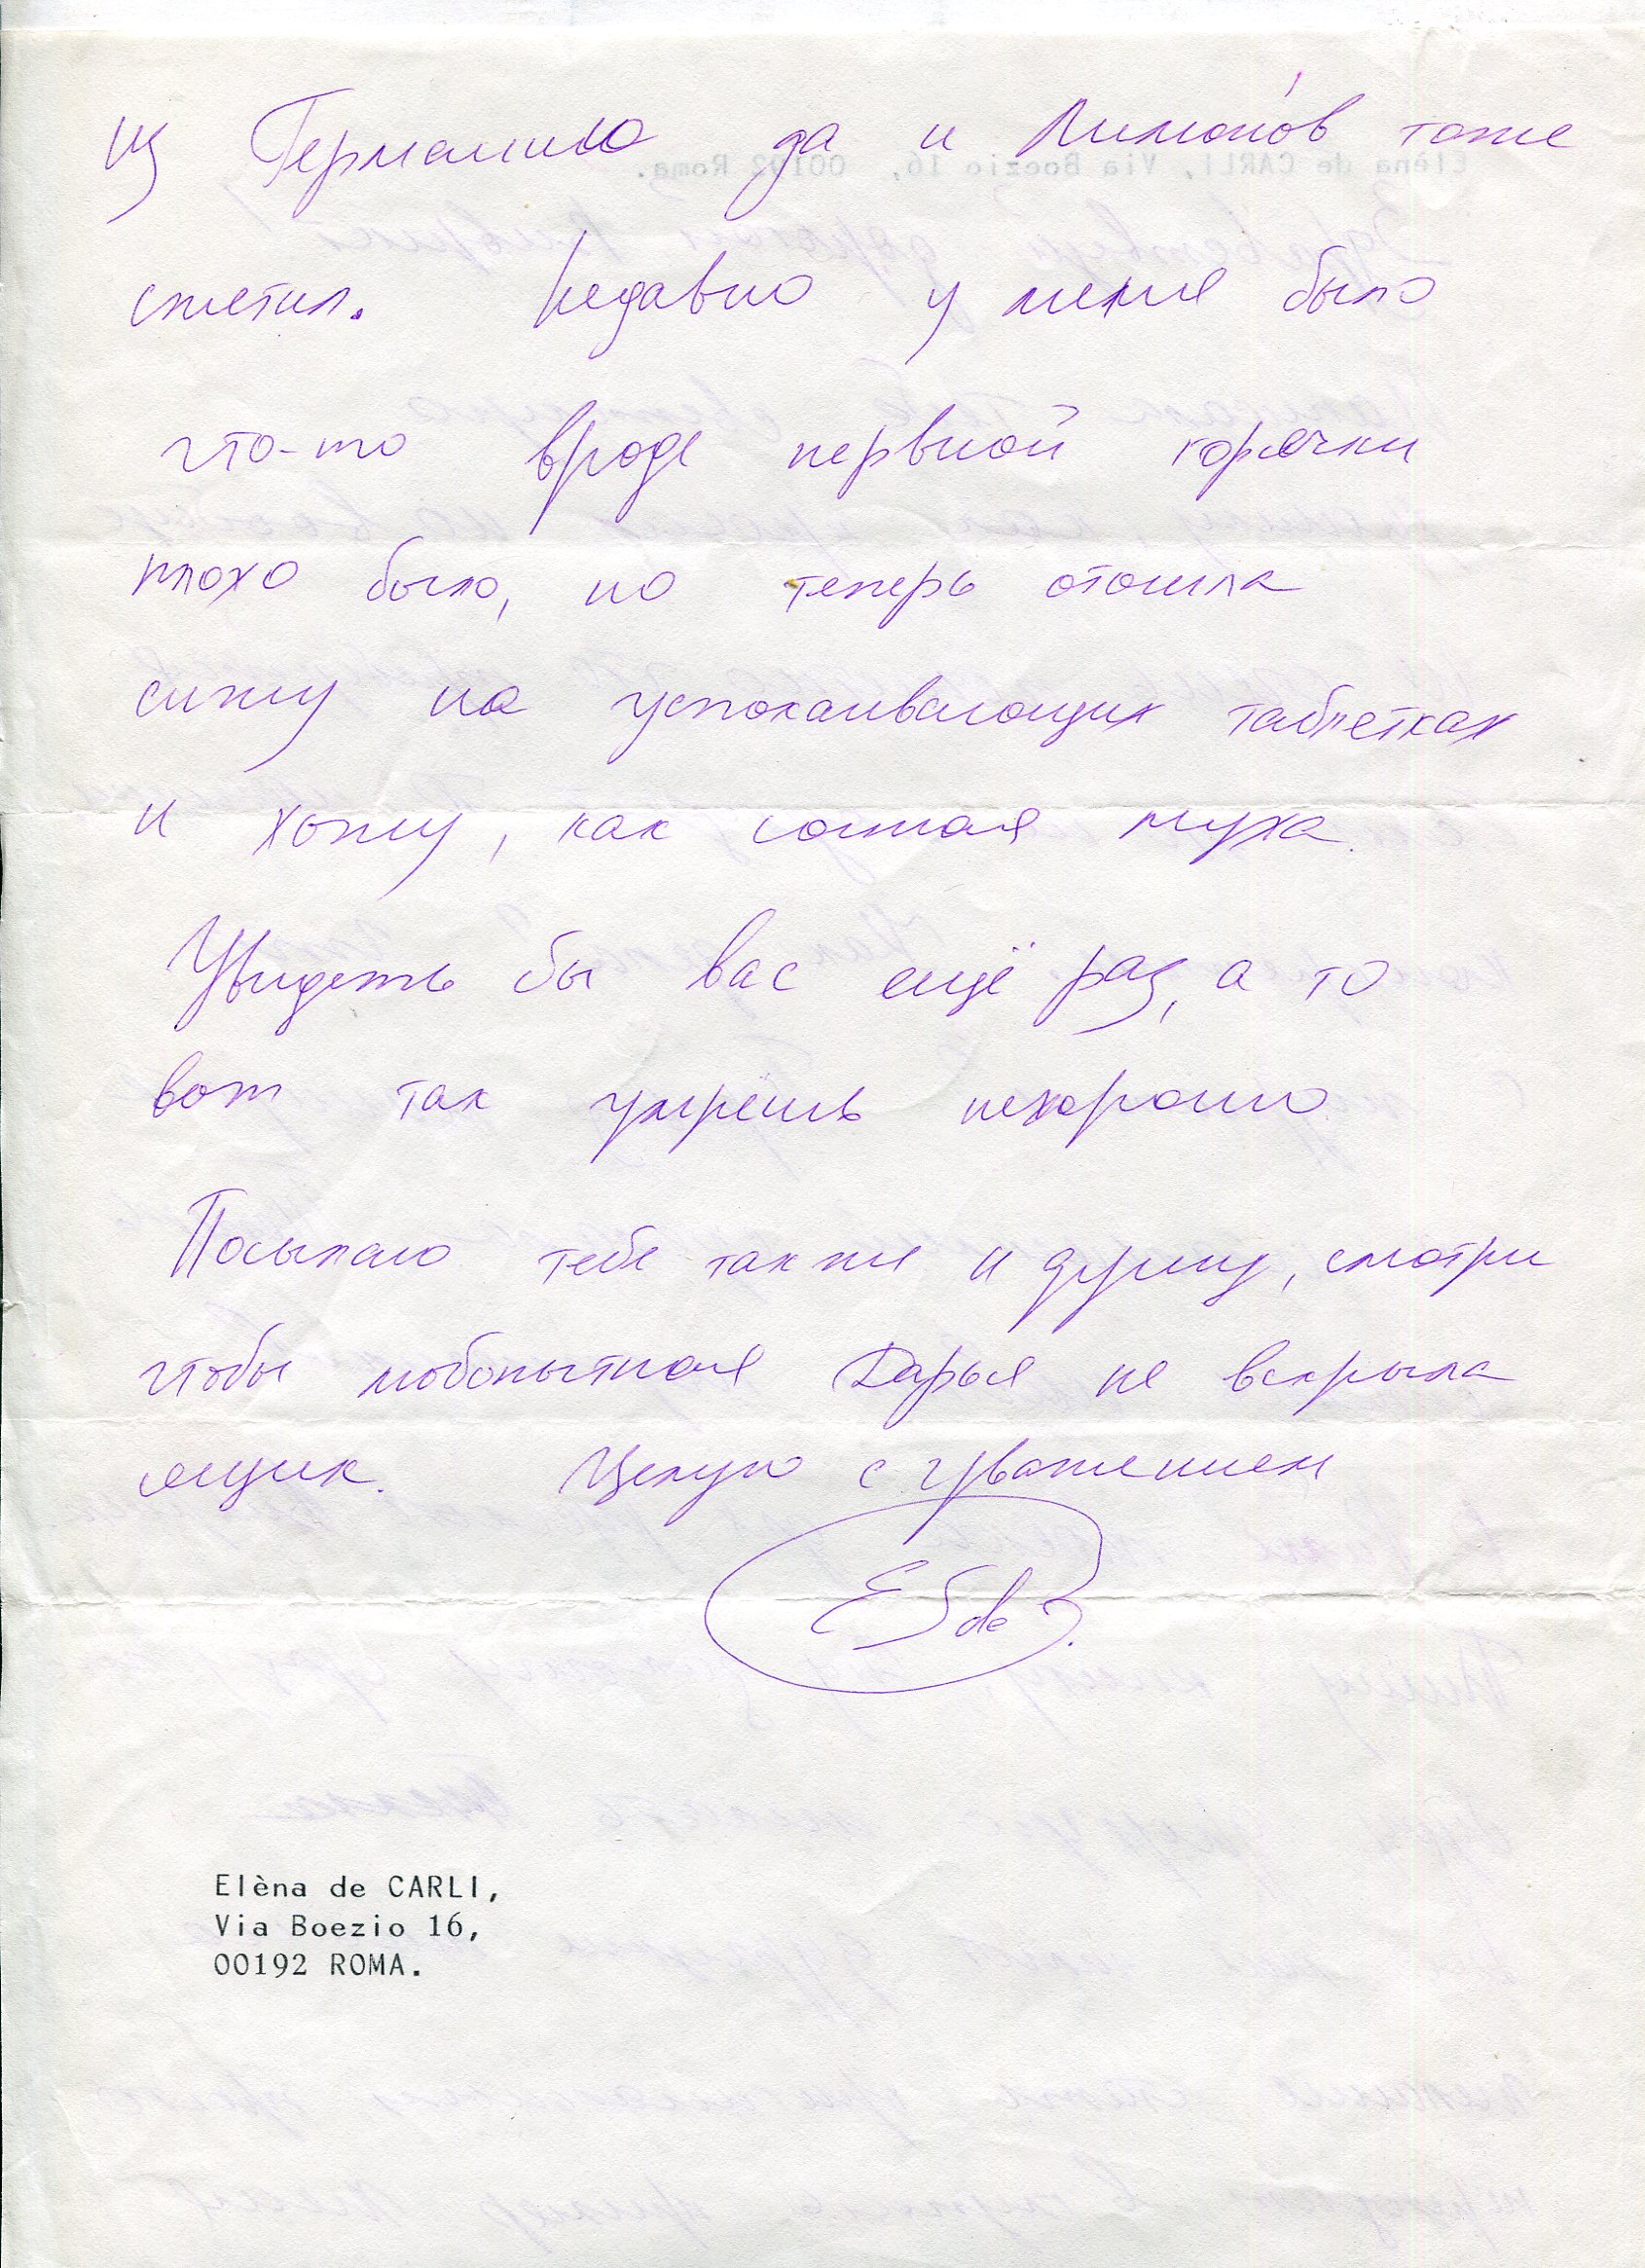 из Германию да и Лимонов тоже
сметил. Недавно у меня было
что-то вроде нервной горячки
плохо было, но теперь отошла
сижу на успокаивающих таблетках
и хожу, как сонная муха.
Увидеть бы вас ещё раз, а то
вот так умрёшь нехорошо.
Посылаю тебе также и душу, смотри
чтобы любопытная Дарья не вскрыла
ящик. Целую с уважением
Elèna de CARLI,
Via Boezio 16,
00192 ROMA.